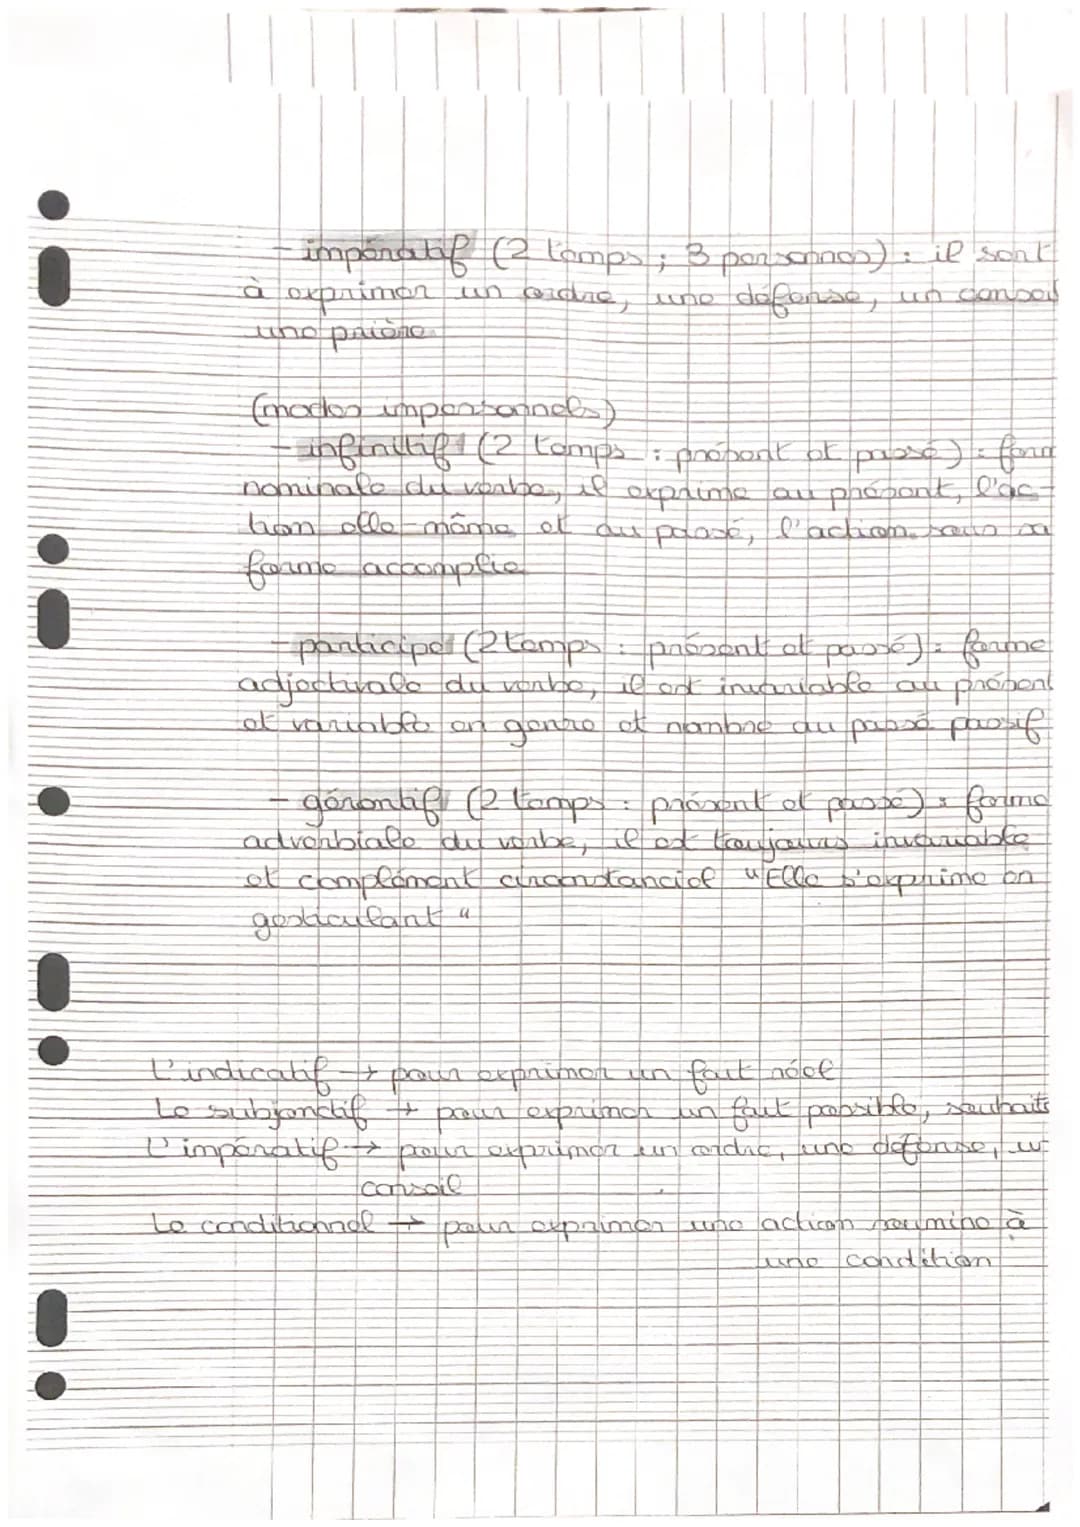 - impératif (2 temps ; 3 personnes) : il sert
à exprimer un ordre, une défense, un conseil
une prière
(modes impersonnels)
- infinitif (2 temps : présent et passé) : form
nominale du verbe, il exprime au présent, l'ac-
tion elle-même et au passé, l'action sous sa
forme accomplie
- participe (2 temps : présent et passé) : forme
adjectivale du verbe, il est invariable au présent
et variable en genre et nombre au passé passif
- gérontif (2 temps : présent et passé) : forme
adverbiale du verbe, il est toujours invariable
et complément circonstanciel "Elle s'exprime en
gesticulant"
L'indicatif → pour exprimer un fait réel
Le subjonctif → pour exprimer un fait possible, souhaité
L'impératif → pour exprimer un ordre, une défense, un
conseil
Le conditionnel → pour exprimer une action soumise à
une condition